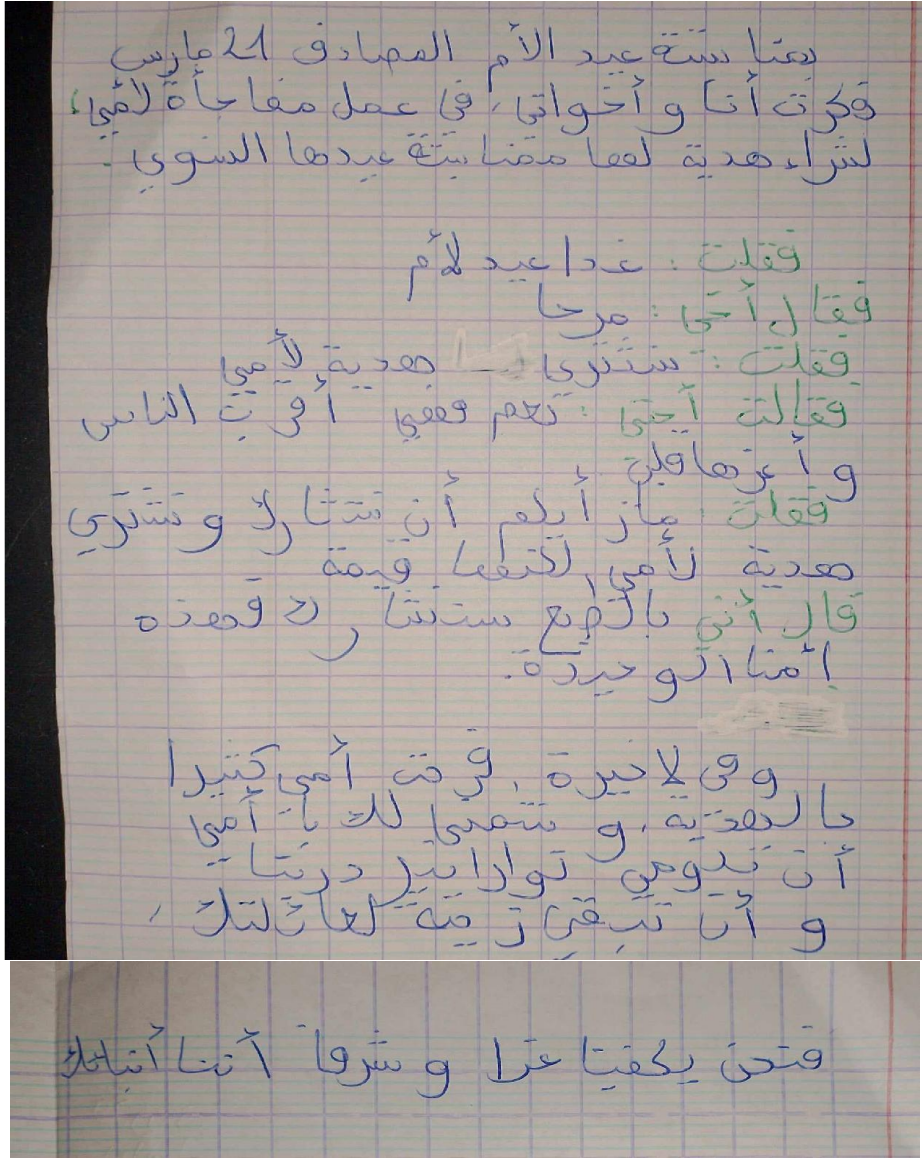 بمناسبة عيد الأم المصادف 21 مارس
فكرت أنا و أخواتي، في عمل مفاجأة لأمي،
لشراء هدية لها مضنابتة عيدها السنوي.
فقلت: غدا عيد لأم
فقال أخي: مرحا
فقلت: سنتري هدية لأمي
فقالت أختي: نعم فهي أقرب الناس
و أعزها قلبي
فقلت: مارأيكم أن نتشارك و نشتري
هدية لأمي، لكنها قيمة
قال أخي بالطبع سنتشارك فهذه
أمنا الوحيدة.
وفي لاخيرة، فرحت أمي كثيرا
بالهدية، و نتمنى لك يا أمي
أن تدومي نوارا ينير دربنا
و أن تبقي زينة لعائلتك،
فنحن يكفينا عزا و شرفا أننا أبنائك